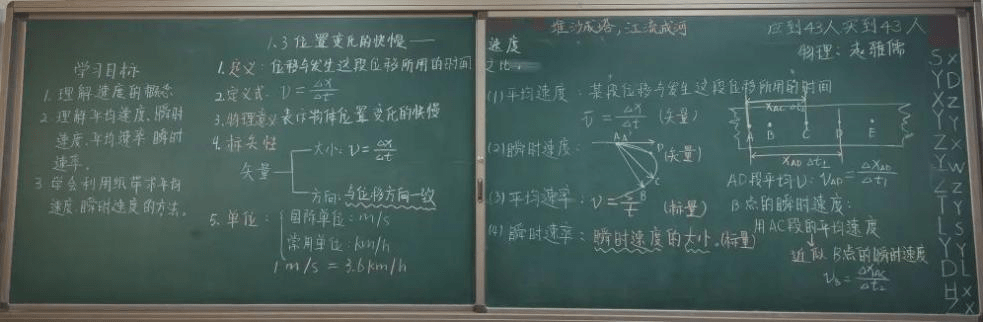 1.3 位置变化的快慢——速度
学习目标
1. 理解速度的概念
2. 理解平均速度、瞬时
速度、平均速率 瞬时
速率。
3 学会利用纸带求平均
速度、瞬时速度的方法。
1. 定义: 位移与发生这段位移所用的时间之比。
2. 定义式. V = Δx/Δt
3. 物理意义 表示物体位置变化的快慢
4. 标矢性
矢量
大小: V = Δx/Δt
方向: 与位移方向一致
5. 单位:
国际单位: m/s
常用单位: km/h
1 m/s = 3.6 km/h
堆沙成塔,江流成河
应到43人 实到43人
物理:
(1) 平均速度: 某段位移与发生这段位移所用的时间
v̅ = Δx/Δt (矢量)
(2) 瞬时速度:
(矢量)
A D C B
(3) 平均速率: V = s/t (标量)
(4) 瞬时速率: 瞬时速度的大小. (标量)
x_AC Δt
A B C D E
x_AD Δt₁
AD段平均V: V_AD = Δx_AD/Δt₁
B点的瞬时速度:
用AC段的平均速度
近似 B点的瞬时速度
V_B = Δx_AC/Δt₂
S Y X Z Y Z T L Y D H Z
X D Z Y X W Z Y S Y L X X